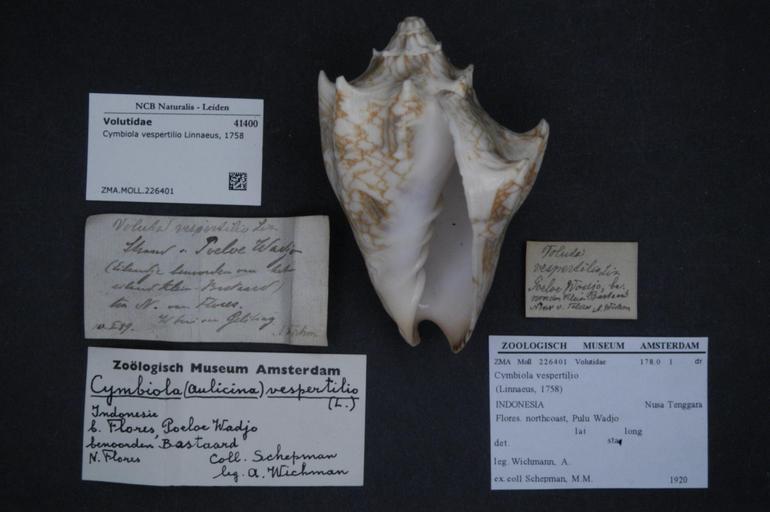 NCB Naturalis - Leiden
Volutidae 41400
Cymbiola vespertilio Linnaeus, 1758
ZMA.MOLL.226401
Voluta vespertilio Lin
Strand v. Poeloe Wadjo
eiland Klein Bastaard
ten N. van Flores.
Zoölogisch Museum Amsterdam
Cymbiola (Aulicina) vespertilio
(L.)
Indonesie
b. Flores, Poeloe Wadjo
benoorden, Bastaard
N. Flores
Coll. Schepman
leg. A. Wichman
Voluta
vespertilio Lin
Poeloe Wadjo, be
noorden Klein Bastaard
A. Wichm
ZOOLOGISCH MUSEUM AMSTERDAM
ZMA Moll 226401 Volutidae 178.0 1 dr
Cymbiola vespertilio
(Linnaeus, 1758)
INDONESIA Nusa Tenggara
Flores. northcoast, Pulu Wadjo
lat long
det. sta
leg. Wichmann, A.
ex.coll Schepman, M.M. 1920